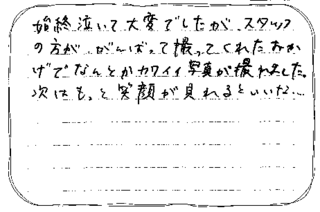 始終泣いて大変でしたが、スタッフ
の方が、がんばって撮ってくれたおか
げでなんとかカワイイ写真が撮れました。
次はもっと笑顔が見れるといいな…